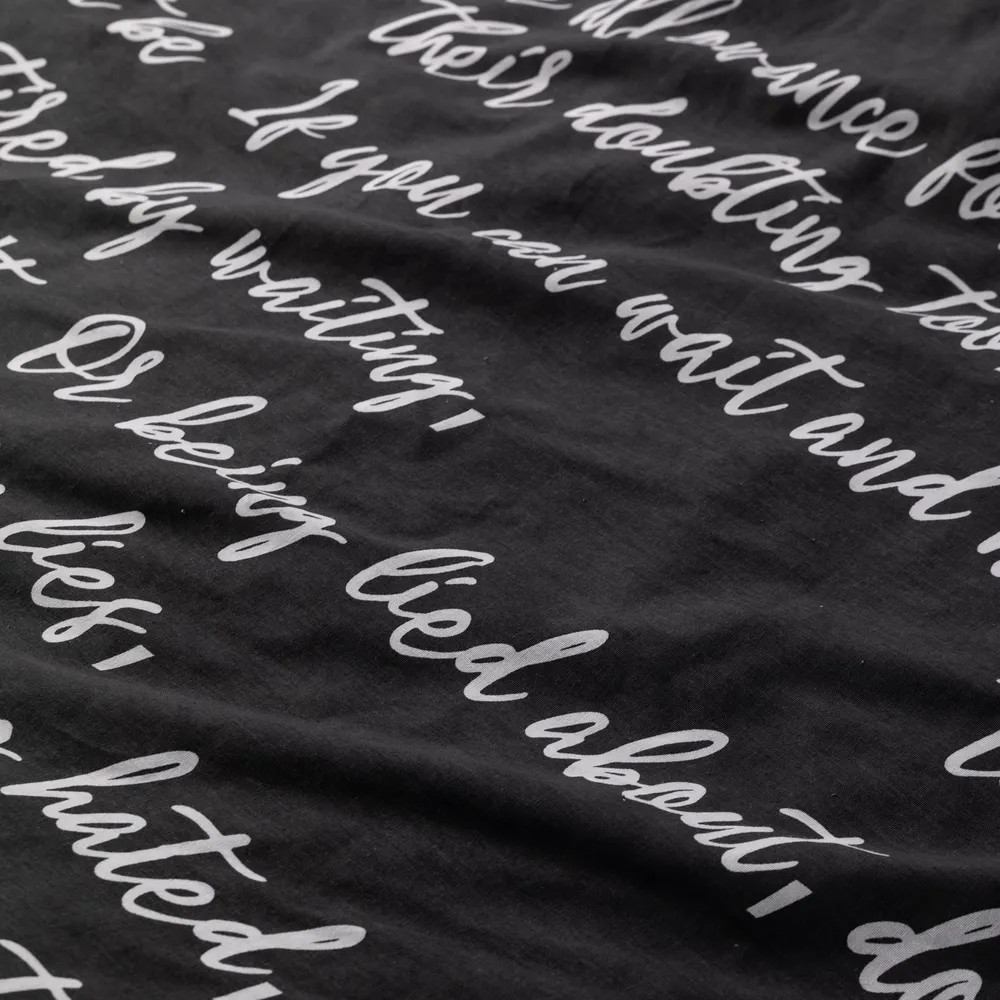 allowance
their doubting
If you can wait and
be
tired by waiting,
Or being lied about,
lies,
hated,